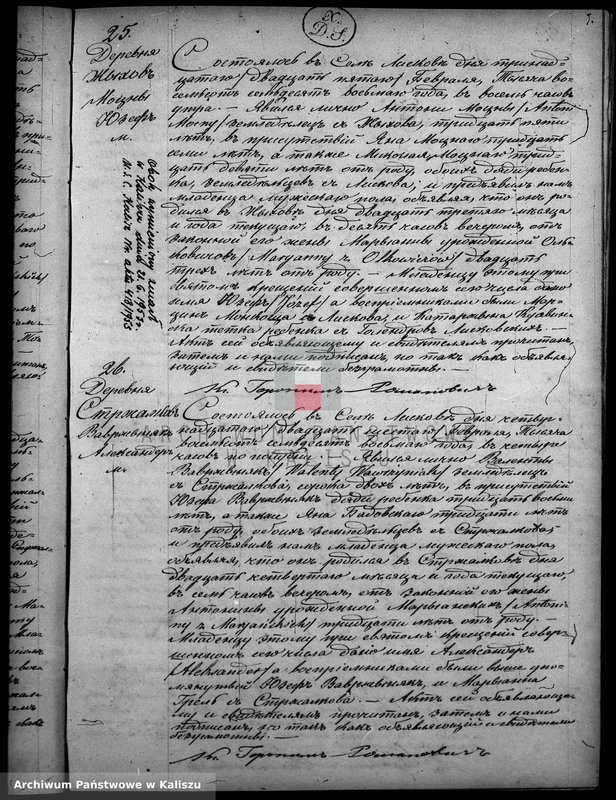 X.
D.S.
7.
25.
Деревня
Жыховъ
Моцны
Юзефъ
м.
Obok wymieniony zmarł
w Kaliszu dnia 21.6.1957 r.
U.S.C. Kalisz Nr aktu 418/1963
Состоялось въ Селѣ Лисковъ дня тринад-
цатаго/двадцать пятаго/ Февраля, тысяча во-
семьсотъ семьдесятъ восьмаго года, въ восемь часовъ
утра. — Явился лично Антоній Моцны /Antoni
Mocny/ земледѣлецъ съ Жыхова, тридцать пяти
лѣтъ, въ присутствіи Яна Моцнаго тридцать
семи лѣтъ, а также Миколая Моцнаго трид-
цать девяти лѣтъ отъ роду, обоихъ дядей ребен-
ка, земледѣльцевъ съ Лискова; и предъявилъ намъ
младенца мужескаго пола, объявляя, что онъ ро-
дился въ Жыховѣ дня двадцать третьяго мѣсяца
и года текущаго, въ десять часовъ вечеромъ, отъ
законной его жены Марьянны урожденной
двадцать
трехъ лѣтъ отъ роду. — Младенцу этому при
святомъ крещеніи совершенномъ сего числа дано
имя Юзефъ /Józef/ а воспріемниками были Мар-
цинъ съ Лискова, и Катаржина
тетка ребенка съ Голендровъ Лисковскихъ. —
Актъ сей объявляющему и свидѣтелямъ прочитанъ,
затѣмъ и нами подписанъ, но такъ какъ объявля-
ющій и свидѣтели безграмотны. —
Кс. Геронимъ Романовичъ
26.
Деревня
Стржалковъ
Вавржыньякъ
Александеръ
м.
Состоялось въ Селѣ Лисковъ дня четыр-
надцатаго/двадцать шестаго/ Февраля, тысяча
восемьсотъ семьдесятъ восьмаго года, въ четыре
часовъ по полудни. — Явился лично Валенты
Вавржыньякъ /Walenty Wawrzyniak/ земледѣлецъ
съ Стржалкова, сорока двохъ лѣтъ, въ присутствіи
Юзефа Вавржыньяка дяди ребенка тридцать восьми
лѣтъ, а также Яна тридцати лѣтъ
отъ роду, обоихъ земледѣльцевъ съ Стржалкова;
и предъявилъ намъ младенца мужескаго пола,
объявляя, что онъ родился въ Стржалковѣ дня
двадцать четвертаго мѣсяца и года текущаго,
въ семь часовъ вечеромъ, отъ законной его жены
Антонины урожденной Марьянскихъ /Antoni-
ny z Maryańskich/ тридцати лѣтъ отъ роду. —
Младенцу этому при святомъ крещеніи совер-
шенномъ сего числа дано имя Александеръ
/Aleksander/ а воспріемниками были выше упо-
мянутый Юзефъ Вавржыньякъ, и Марьянна
съ Стржалкова. — Актъ сей объявляюще-
му и свидѣтелямъ прочитанъ, затѣмъ и нами
подписанъ, но такъ какъ объявляющій и свидѣтели
безграмотны. —
Кс. Геронимъ Романовичъ
Archiwum Państwowe w Kaliszu